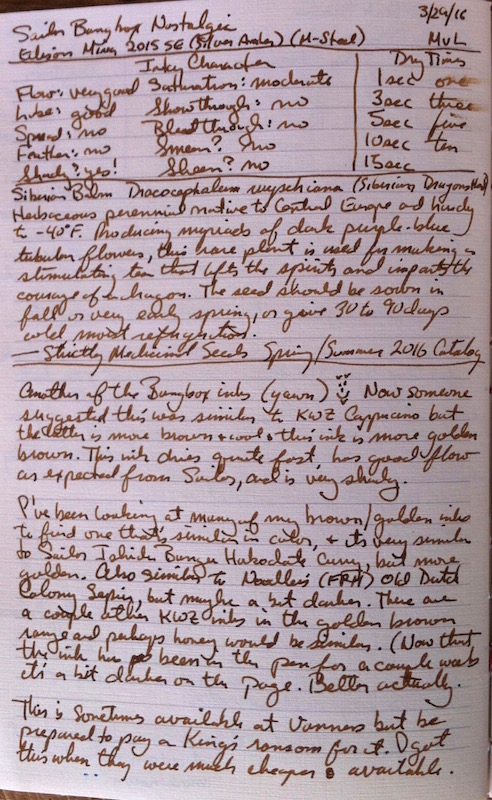 Sailor Bungbox Nostalgia 3/29/16
Edison Mina 2015 SE (Silver Amber) (M-Steel) MvL
Inky Character
Flow: very good Saturation: moderate
Lube: good Show through: no
Spread: no Bleed through: no
Feather: no Smear? no
Shady? yes! Sheen? no
Dry Times
1 sec one
3 sec three
5 sec five
10 sec ten
15 sec
Siberian Balm Dracocephalum ruyschiana (Siberian Dragonhead)
Herbaceous perennial native to Central Europe and hardy
to -40°F. Producing myriads of dark purple-blue
tubular flowers, this rare plant is used for making a
stimulating tea that lifts the spirits and imparts the
courage of a dragon. The seed should be sown in
fall or very early spring, or give 30 to 90 days
cold moist refrigeration.
— Strictly Medicinal Seeds Spring/Summer 2016 Catalog
Another of the Bungbox inks (yawn) Now someone
suggested this was similar to KWZ Cappucino but
the latter is more brown + cool + this ink is more golden
brown. This ink dries quite fast, has good flow
as expected from Sailor, and is very shady.
I've been looking at many of my brown/golden inks
to find one that's similar in color, + it's very similar
to Sailor Ishida Bungu Hakodate Curry, but more
golden. Also similar to Noodler's (FPH) Old Dutch
Colony Sepia, but maybe a bit darker. There are
a couple other KWZ inks in the golden brown
range and perhaps honey would be similar. (Now that
the ink has been in the pen for a couple weeks
it's a bit darker on the page. Better actually.
This is sometimes available at Vanness but be
prepared to pay a King's ransom for it. I got
this when they were much cheaper & available.